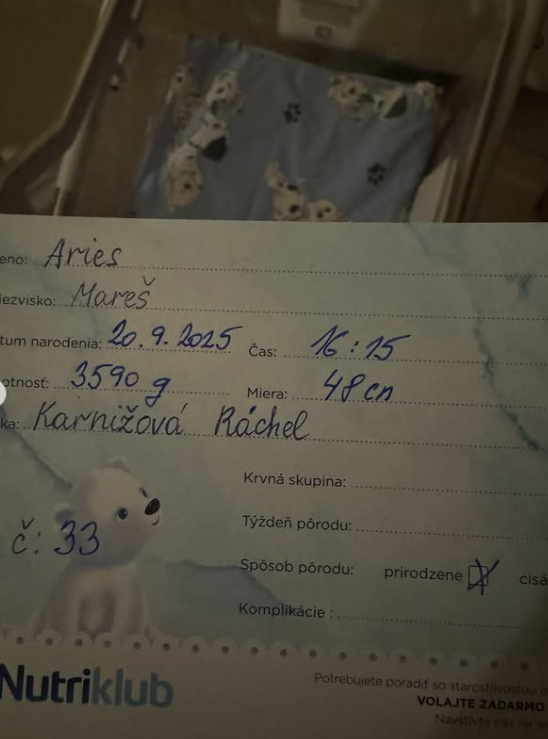 eno: Aries
iezvisko: Mareš
tum narodenia: 20.9.2025 Čas: 16:15
otnosť: 3590 g Miera: 48 cm
ka: Karnižová Ráchel
Krvná skupina:
Týždeň pôrodu:
č: 33
Spôsob pôrodu: prirodzene cisá
Komplikácie :
Nutriklub
Potrebujete poradiť so starostlivosťou o
VOLAJTE ZADARMO
Navštívte nás na w